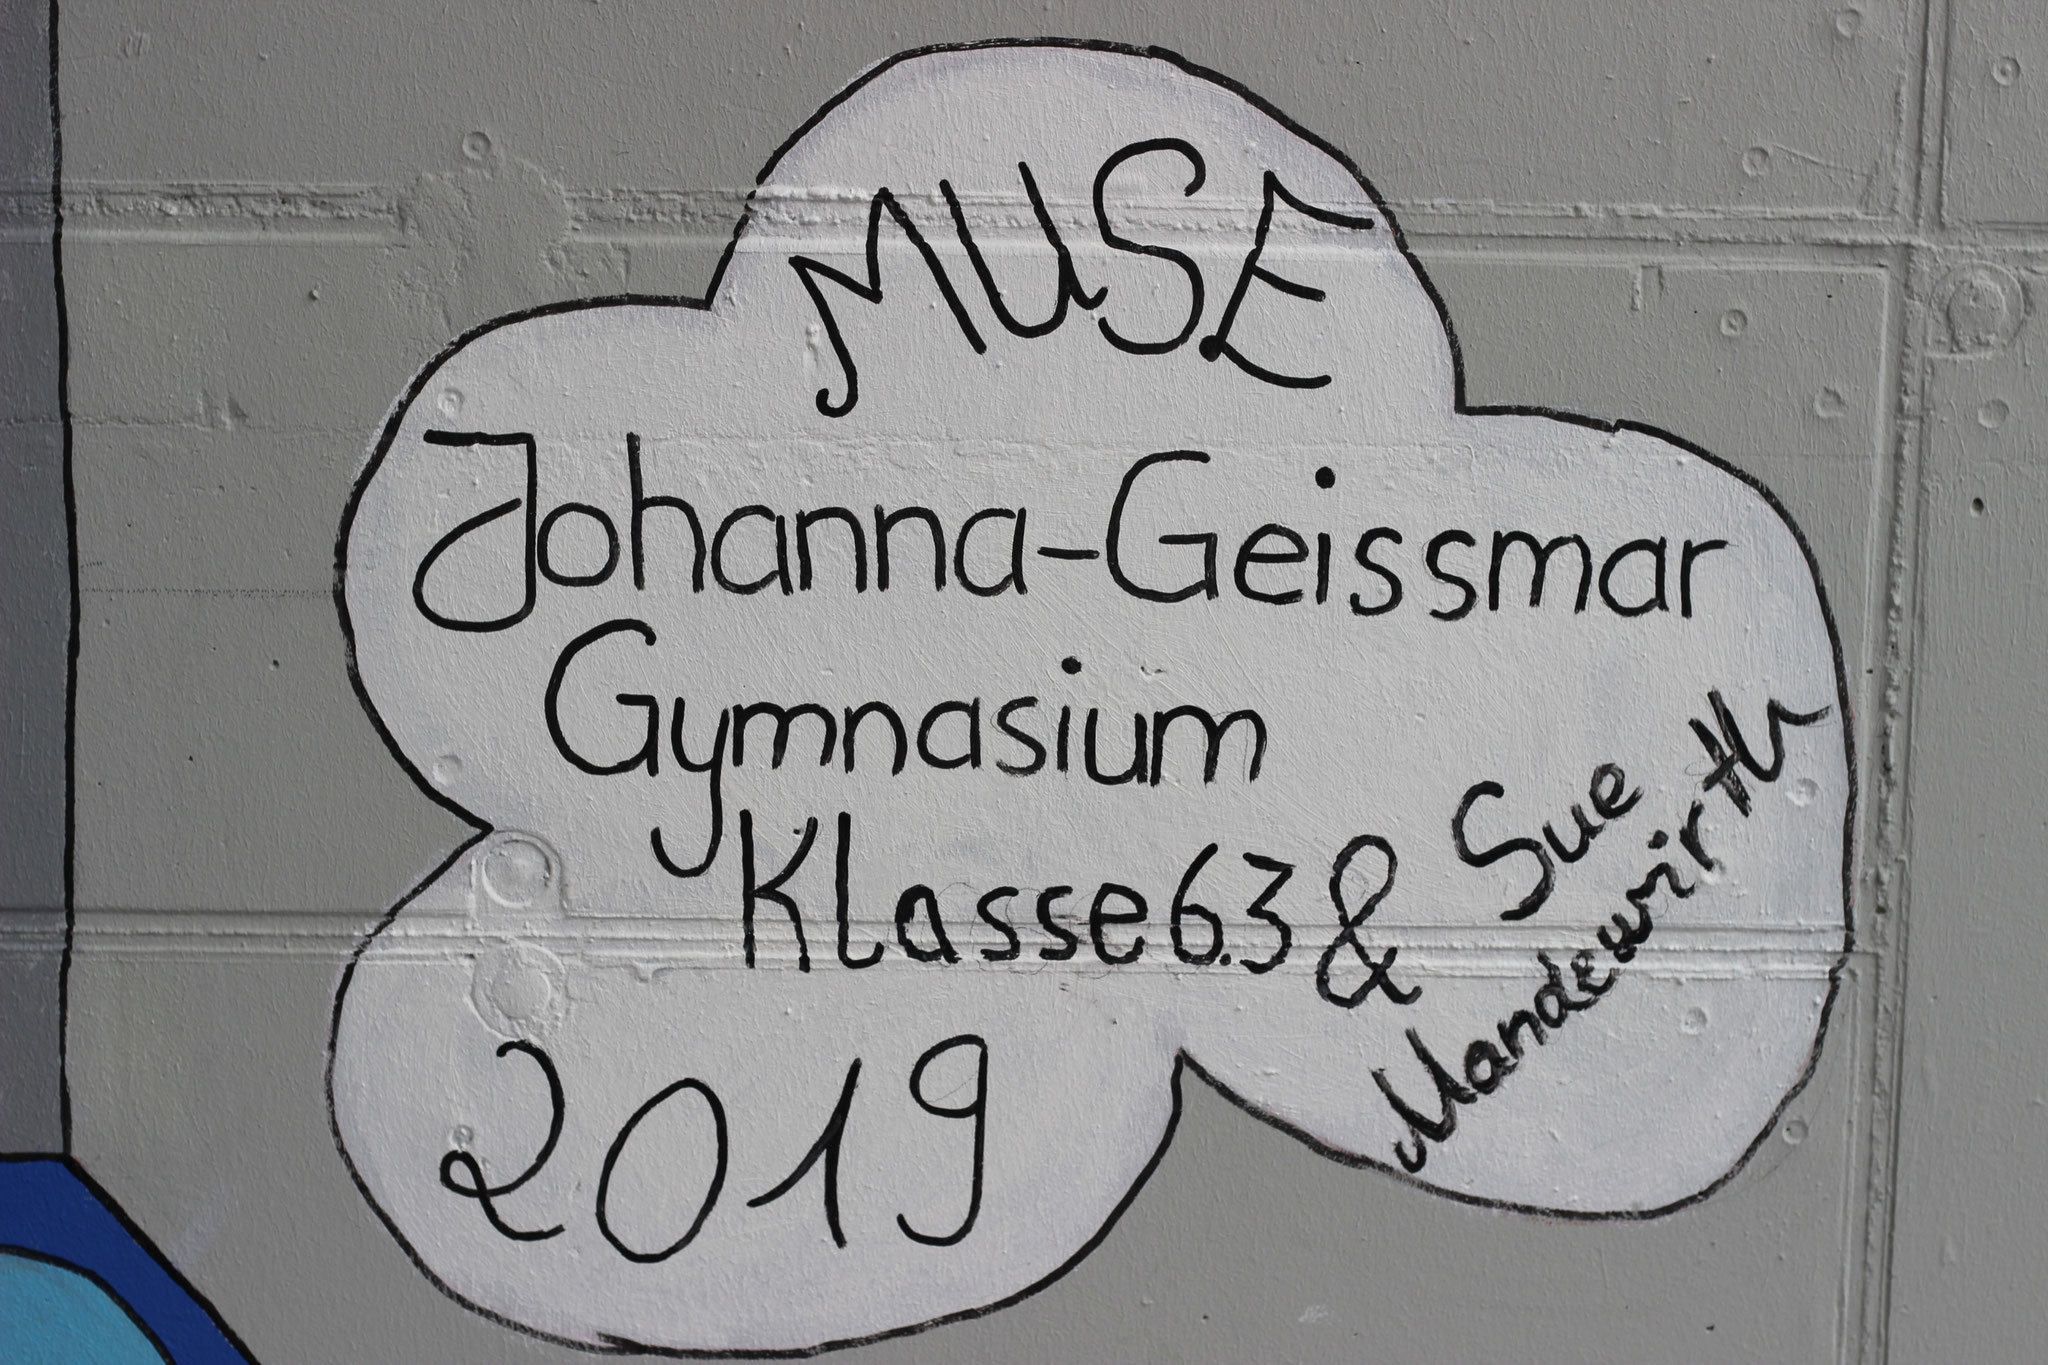 MUSE
Johanna-Geissmar
Gymnasium
Klasse 6.3 & Sue
Mandewirth
2019